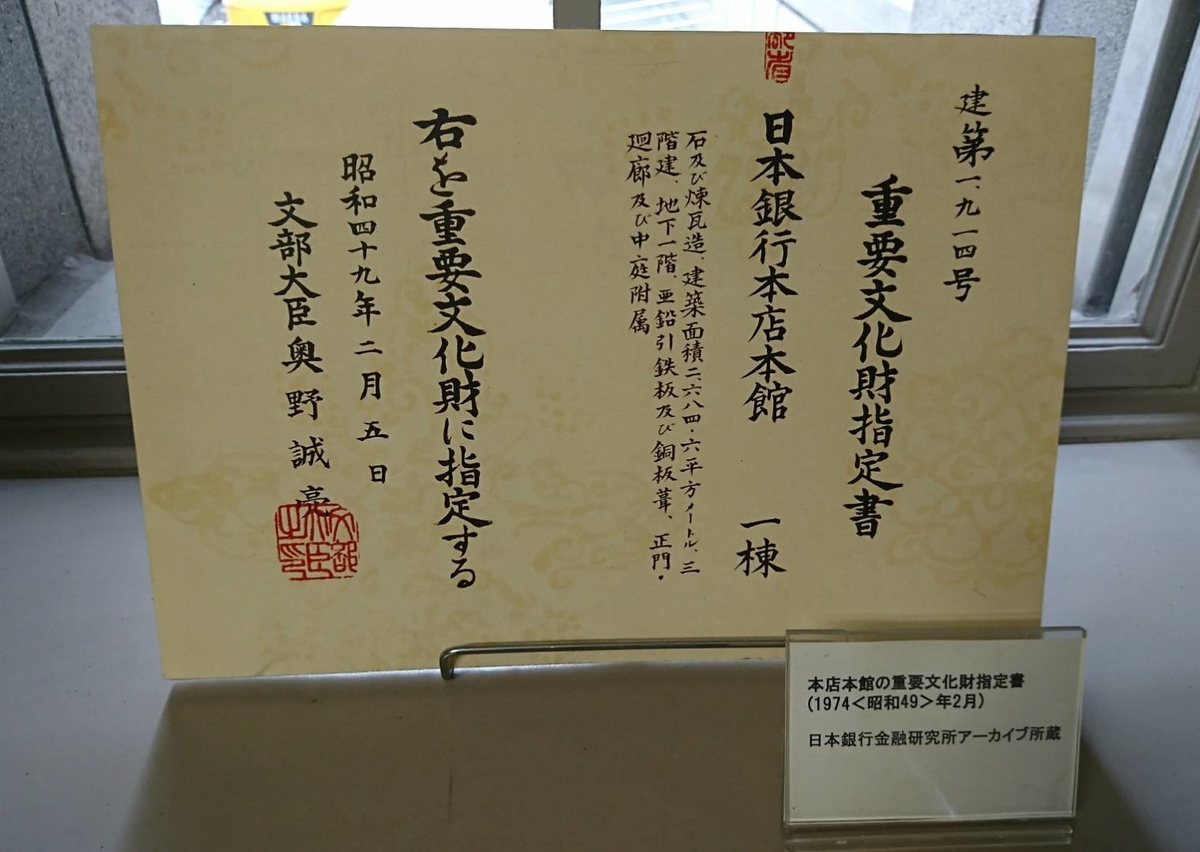 建第一、九一四号
重要文化財指定書
日本銀行本店本館 一棟
石及び煉瓦造、建築面積二六八四・六平方メートル、三
階建、地下一階、亜鉛引鉄板及び銅板葺、正門・
廻廊及び中庭附属
右を重要文化財に指定する
昭和四十九年二月五日
文部大臣 奥野誠亮
本店本館の重要文化財指定書
(1974<昭和49>年2月)
日本銀行金融研究所アーカイブ所蔵